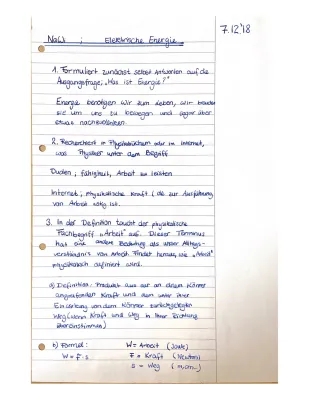 7.12.'18
NaWi ; Elektrische Energie
1. Formuliert zunächst selbst Antworten auf die
Ausgangsfrage: „Was ist Energie?"
Energie benötigen wir zum leben, wir brauchen
sie um uns zu bewegen und sogar über
etwas nachzudenken.
2. Recherchiert in Physikbüchern oder im Internet,
was Physiker unter dem Begriff
Duden ; fähigkeit, Arbeit zu leisten
Internet ; physikalische Kraft ( die zur Ausführung
von Arbeit nötig ist.
3. In der Definition taucht der physikalische
Fachbegriff „Arbeit" auf. Dieser Terminus
hat eine andere Bedeutung als unser Alltags-
verständnis von Arbeit. Findet heraus, wie „Arbeit"
physikalisch definiert wird.
a) Definition: Produkt aus der an einem Körper
angreifenden Kraft und dem unter ihrer
Einwirkung von dem Körper zurückgelegten
Weg (wenn Kraft und Weg in ihrer Richtung
übereinstimmen)
b) Formel: W = Arbeit (Joule)
W = F · s F = Kraft (Newton)
s = Weg (m, cm..)